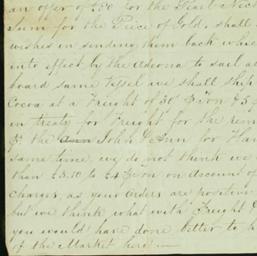 an offer of
Sum for the Piece of Gold. shall
wishes in sending them back whic
into effect by the to sail a
board same Vessel we shall ship
Cocoa at a Freight of 30
in treaty for Freight for the rem
the John for Ha
same time, we do not think we
than £3.10 to on account of
charges, as your orders are positive
but we think what with Freight
you would have done better to h
of the Market here